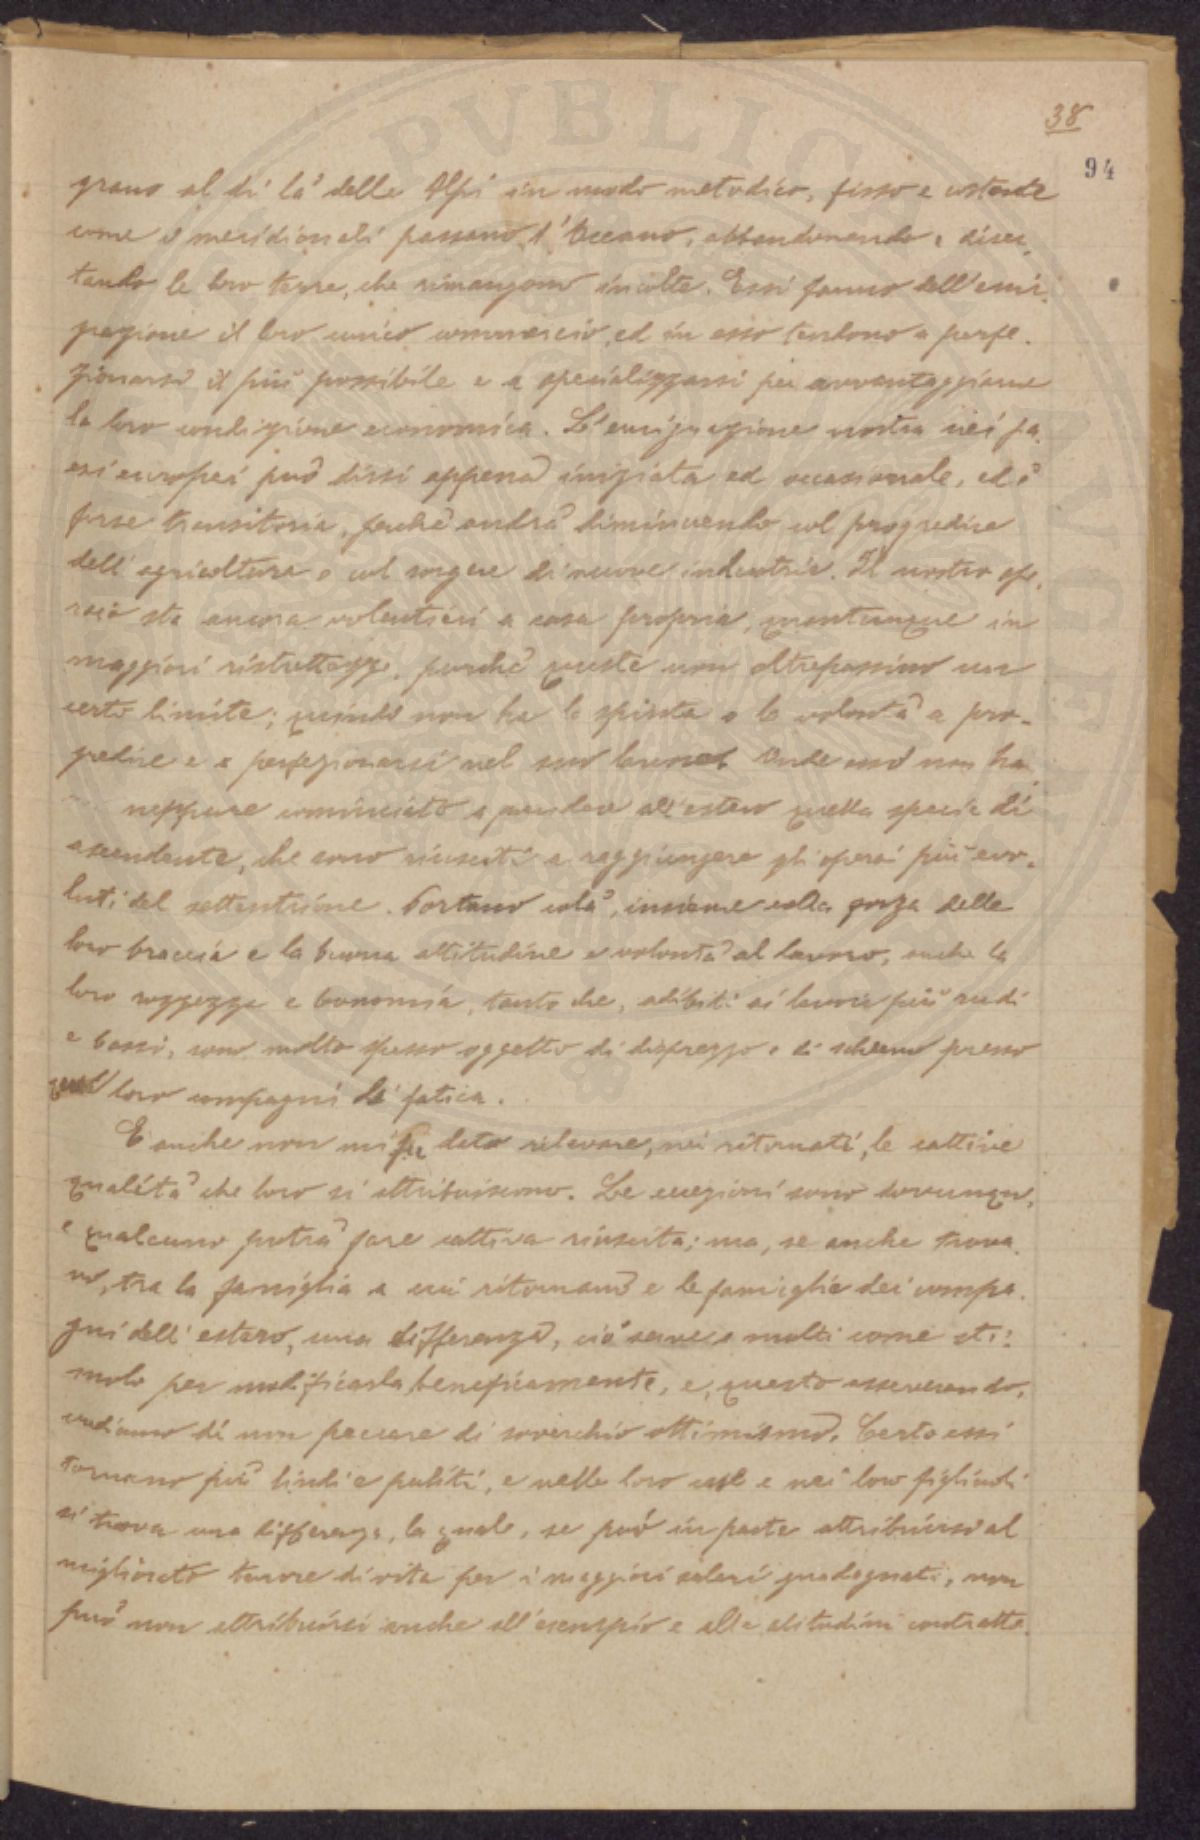 38
94
grano al di là delle Alpi in modo metodico, fisso e costante
come i meridionali passano l'Oceano, abbandonando e diser-
tando le loro terre, che rimangono incolte. Essi fanno dell'emi-
grazione il loro unico commercio, ed in esso tendono a perfe-
zionarsi il più possibile e a specializzarsi per avvantaggiarne
la loro condizione economica. L'emigrazione nostra nei pa-
esi europei può dirsi appena iniziata ed occasionale, ed è
forse transitoria, perchè andrà diminuendo col progredire
dell'agricoltura e col sorgere di nuove industrie. Il nostro ope-
raio sta ancora volentieri a casa propria, quantunque in
maggiori ristrettezze, purchè queste non oltrepassino un
certo limite; quindi non ha la spinta o la volontà a pro-
gredire e a perfezionarsi nel suo lavoro. Onde esso non ha
neppure cominciato a prendere all'estero quella specie di
ascendente, che sono riusciti a raggiungere gli operai più evo-
luti del settentrione. Portano colà, insieme colla forza delle
loro braccia e la buona attitudine e volontà al lavoro, anche la
loro rozzezza e bonomia, tanto che, adibiti ai lavori più rudi
e bassi, sono molto spesso oggetto di disprezzo e di scherno presso
loro compagni di fatica.
E anche non mi fu dato rilevare, nei ritornati, le cattive
qualità che loro si attribuiscono. Le eccezioni sono dovunque,
e qualcuno potrà fare cattiva riuscita; ma, se anche trova-
no, tra la famiglia a cui ritornano e le famiglie dei compa-
gni dell'estero, una differenza, ciò serve a molti come sti-
molo per modificarla beneficamente, e, questo asseverando,
crediamo di non peccare di soverchio ottimismo. Certo essi
tornano più lindi e puliti, e nelle loro case e nei loro figliuoli
si trova una differenza, la quale, se può in parte attribuirsi al
migliorato tenore di vita per i maggiori salari guadagnati, non
può non attribuirsi anche all'esempio e alle abitudini contratte
PVBLICA AVGET